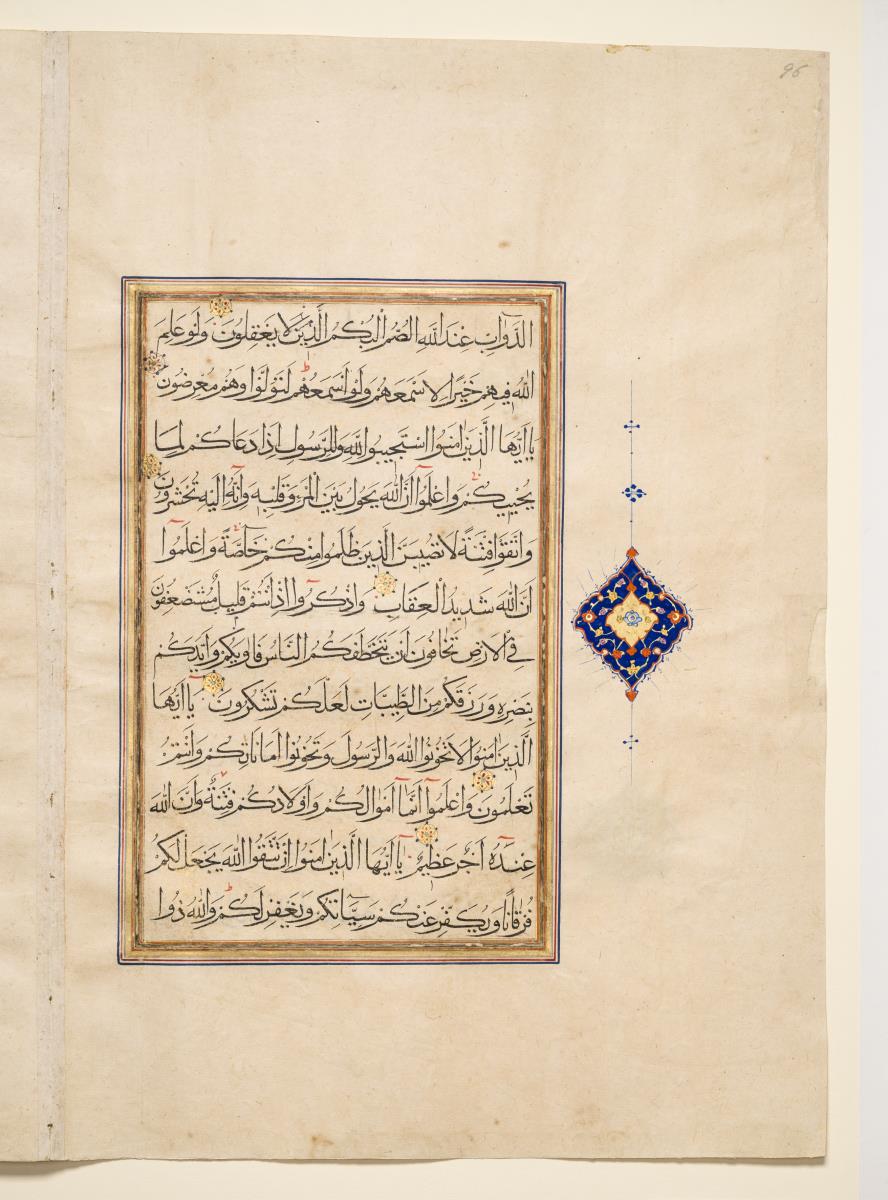 96
الدَّوَابِّ عِنْدَ اللَّهِ الصُّمُّ الْبُكْمُ الَّذِينَ لَا يَعْقِلُونَ وَلَوْ عَلِمَ
اللَّهُ فِيهِمْ خَيْرًا لَاَسْمَعَهُمْ وَلَوْ اَسْمَعَهُمْ لَتَوَلَّوْا وَهُمْ مُعْرِضُونَ
يَا اَيُّهَا الَّذِينَ اٰمَنُوا اسْتَجِيبُوا لِلَّهِ وَلِلرَّسُولِ اِذَا دَعَاكُمْ لِمَا
يُحْيِيكُمْ وَاعْلَمُوا اَنَّ اللَّهَ يَحُولُ بَيْنَ الْمَرْءِ وَقَلْبِهِ وَاَنَّهُ اِلَيْهِ تُحْشَرُونَ
وَاتَّقُوا فِتْنَةً لَا تُصِيبَنَّ الَّذِينَ ظَلَمُوا مِنْكُمْ خَاصَّةً وَاعْلَمُوا
اَنَّ اللَّهَ شَدِيدُ الْعِقَابِ وَاذْكُرُوا اِذْ اَنْتُمْ قَلِيلٌ مُسْتَضْعَفُونَ
فِي الْاَرْضِ تَخَافُونَ اَنْ يَتَخَطَّفَكُمُ النَّاسُ فَاٰوٰيكُمْ وَاَيَّدَكُمْ
بِنَصْرِهِ وَرَزَقَكُمْ مِنَ الطَّيِّبَاتِ لَعَلَّكُمْ تَشْكُرُونَ يَا اَيُّهَا
الَّذِينَ اٰمَنُوا لَا تَخُونُوا اللَّهَ وَالرَّسُولَ وَتَخُونُوا اَمَانَاتِكُمْ وَاَنْتُمْ
تَعْلَمُونَ وَاعْلَمُوا اَنَّمَا اَمْوَالُكُمْ وَاَوْلَادُكُمْ فِتْنَةٌ وَاَنَّ اللَّهَ
عِنْدَهُ اَجْرٌ عَظِيمٌ يَا اَيُّهَا الَّذِينَ اٰمَنُوا اِنْ تَتَّقُوا اللَّهَ يَجْعَلْ لَكُمْ
فُرْقَانًا وَيُكَفِّرْ عَنْكُمْ سَيِّاٰتِكُمْ وَيَغْفِرْ لَكُمْ وَاللَّهُ ذُوا